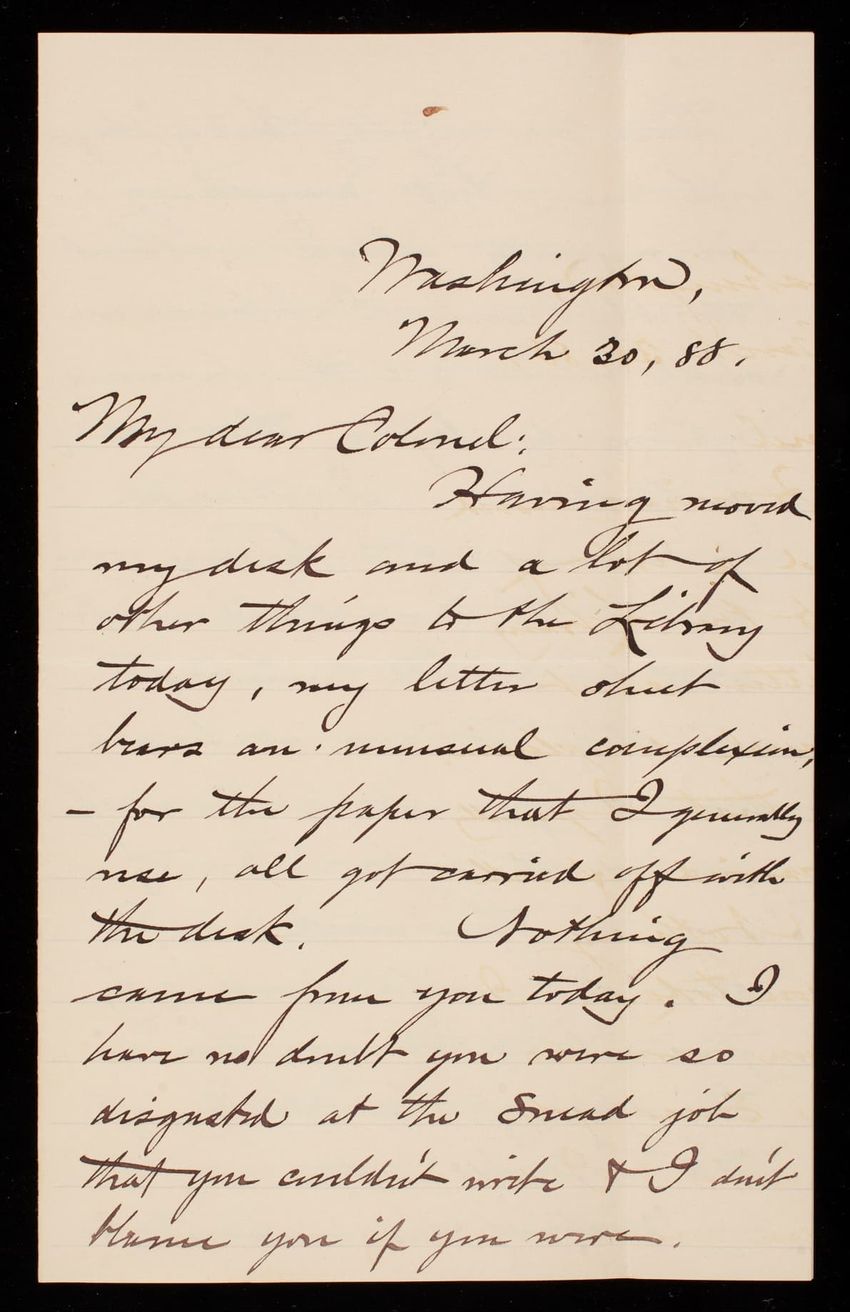 Washington,
March 30, 88.
My dear Colonel:
Having moved
my desk and a lot of
other things to the Library
today, my letter sheet
bears an unusual complexion,
- for the paper that I generally
use, all got carried off with
the desk. Nothing
came from you today. I
have no doubt you were so
disgusted at the Snead job
that you couldn't write & I don't
blame you if you were.